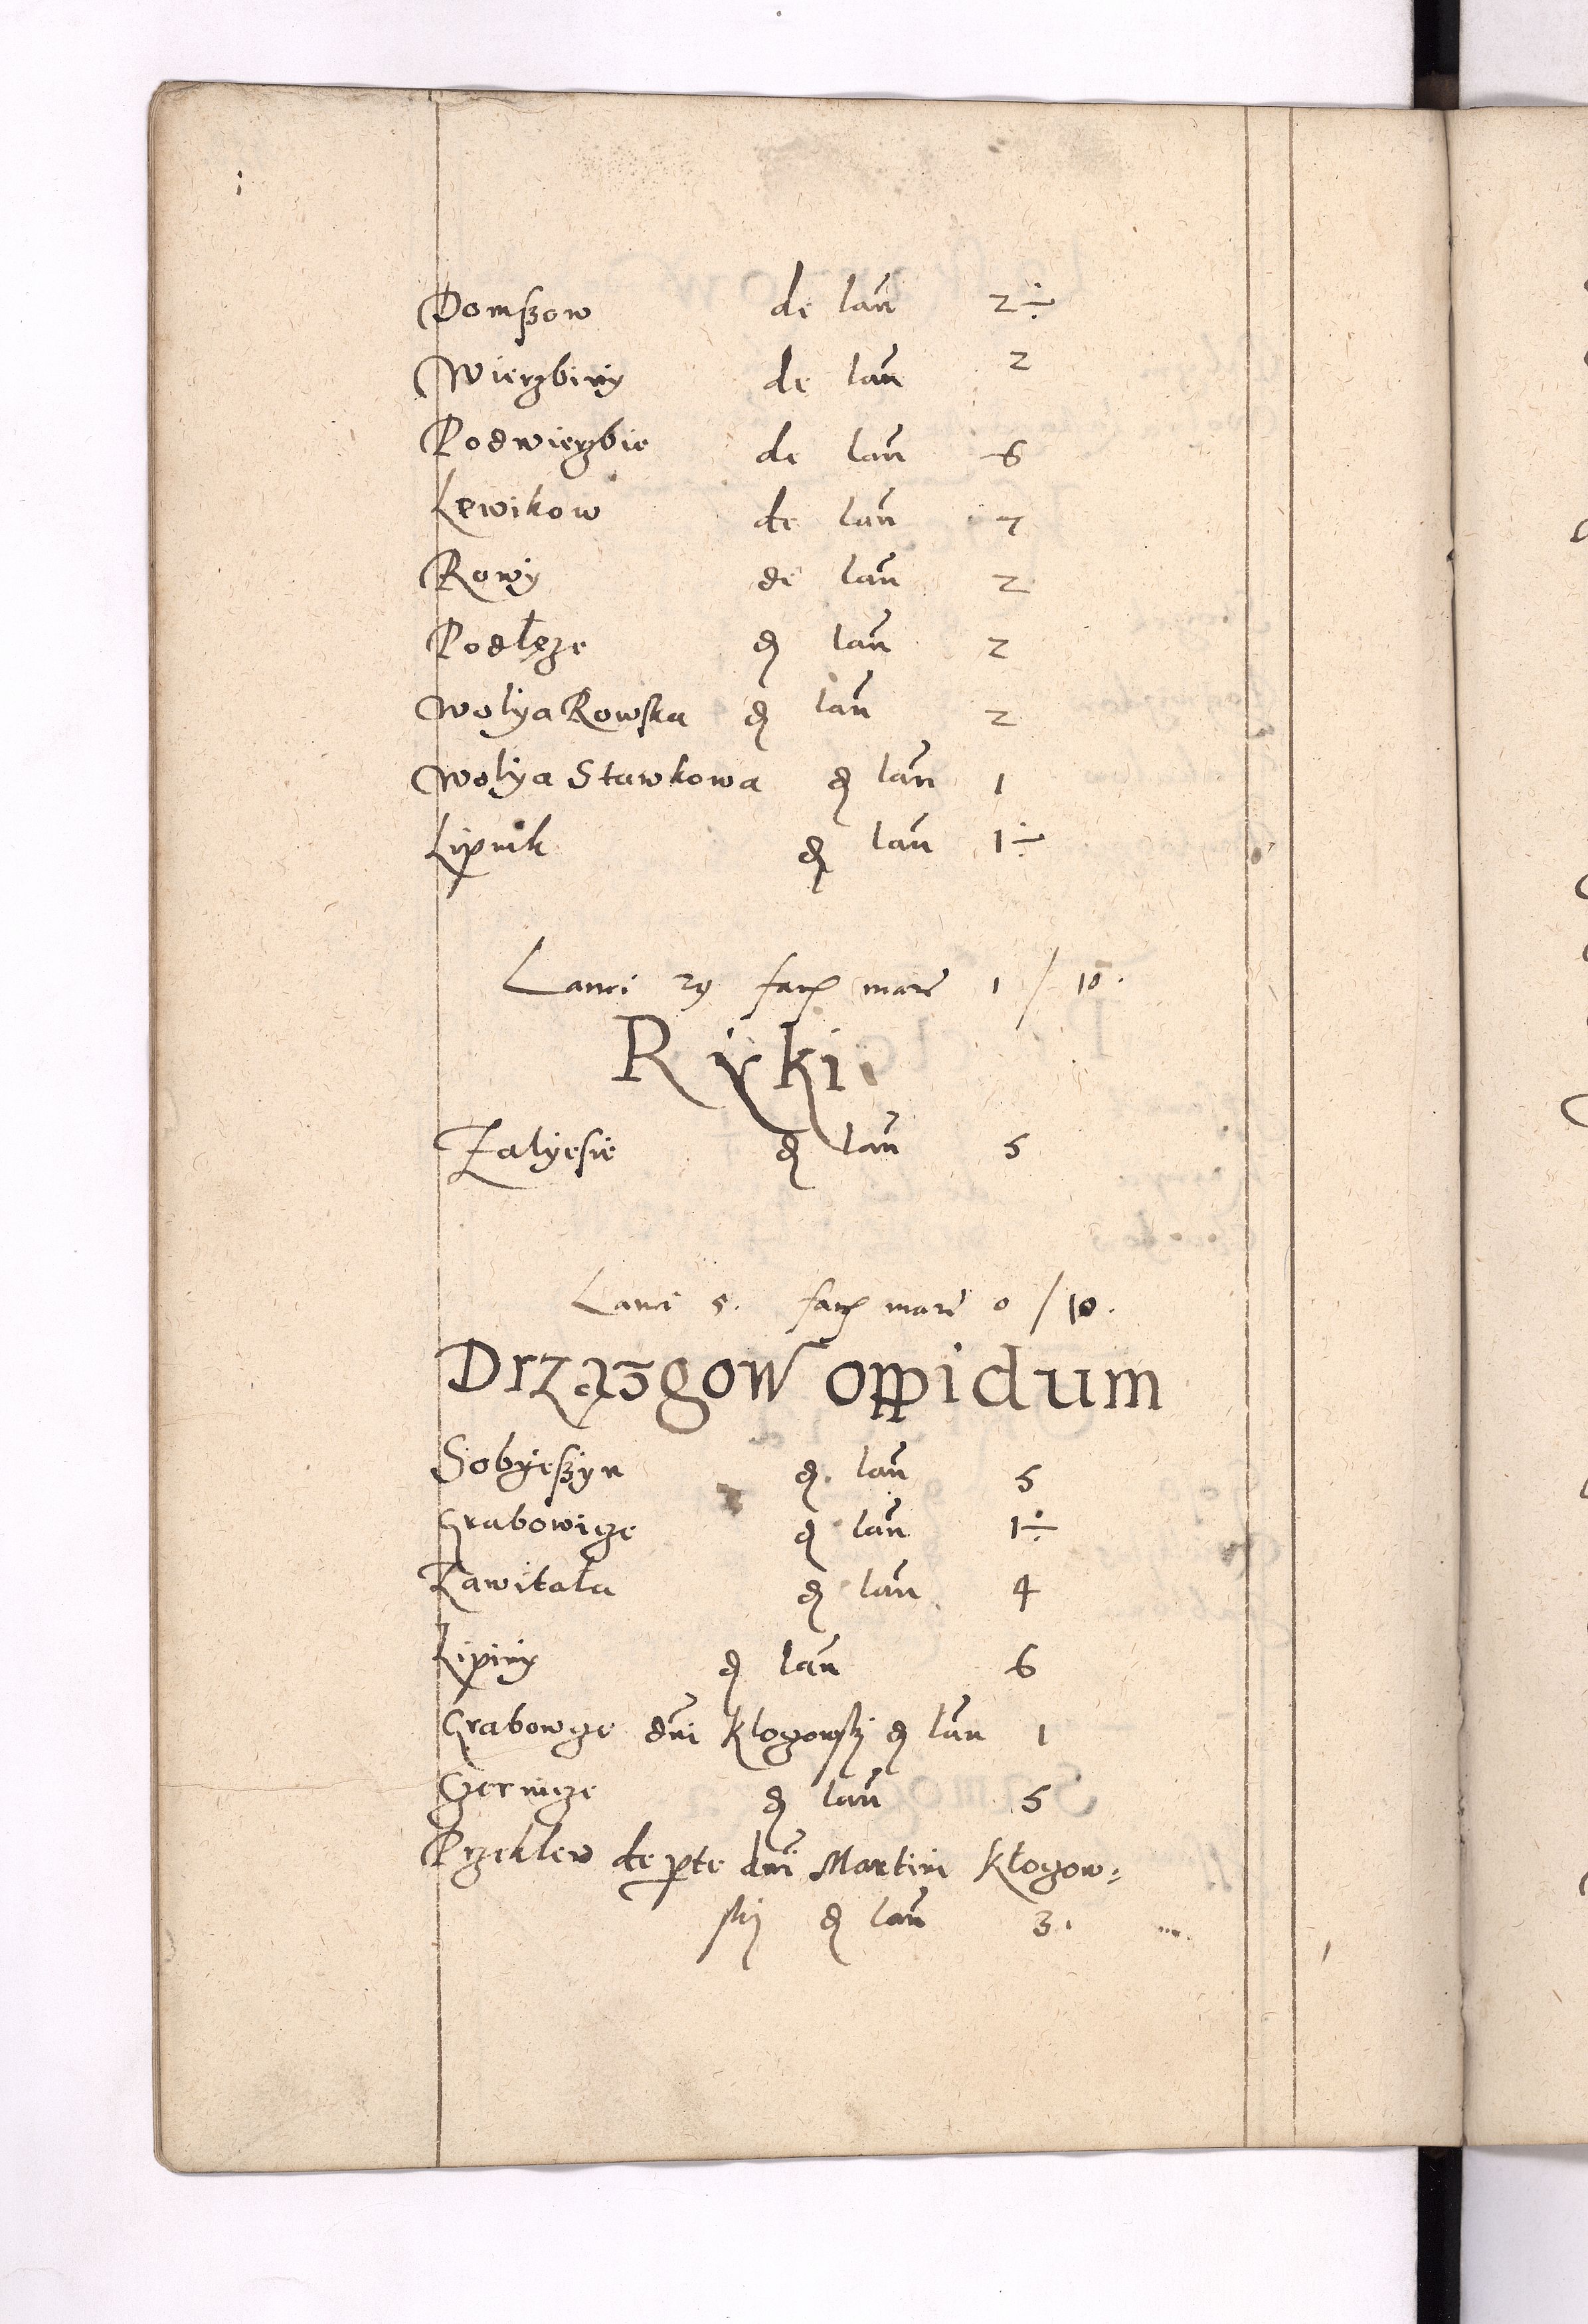 Domszow de lan̄ 2÷
Wierzbiny de lan̄ 2
Podwierzbie de lan̄ 6
Lewikow de lan̄ 7
Rowy de lan̄ 2
Podlęże d lan̄ 2
Wolya Rowska d lan̄ 2
Wolya Stawkowa d lan̄ 1
Lipnik d lan̄ 1÷
Lanei 29 mar̄ 1 / 10.
Ryki
Zalyesie d lan̄ 5
Lanei 5. mar̄ 0 / 10.
Drzązgow oppidum
Sobyeszyn d. lan̄ 5
Grabowize d lan̄ 1÷
Zawitała d lan̄ 4
Lipiny d lan̄ 6
Grabowze dn̄i Klogowskj d lan̄ 1
Czernize d lan̄ 5
Przeklew de pte dn̄i Martini Kłogow:
skj d lan̄ 3.